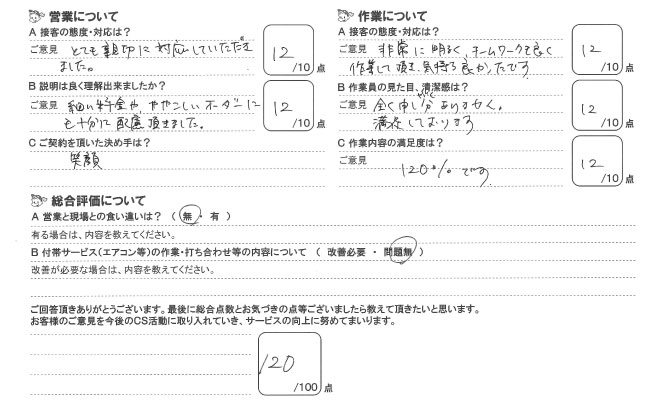 営業について
A 接客の態度・対応は?
ご意見 とても親切に対応していただき
ました。
12 /10 点
B 説明は良く理解出来ましたか?
ご意見 細い料金や、ややこしいオーダーに
も十分に配慮頂きました。
12 /10 点
C ご契約を頂いた決め手は?
笑顔
作業について
A 接客の態度・対応は?
ご意見 非常に明るく、チームワークも良く
作業して頂き、気持ち良かったです
12 /10 点
B 作業員の見た目、清潔感は?
ご意見 全く申し分ありません。
満足しております
12 /10 点
C 作業内容の満足度は?
ご意見 120%です
12 /10 点
総合評価について
A 営業と現場との食い違いは? ( 無 ・ 有 )
有る場合は、内容を教えてください。
B 付帯サービス(エアコン等)の作業・打ち合わせ等の内容について ( 改善必要 ・ 問題無 )
改善が必要な場合は、内容を教えてください。
ご回答頂きありがとうございます。最後に総合点数とお気づきの点等ございましたら教えて頂きたいと思います。
お客様のご意見を今後のCS活動に取り入れていき、サービスの向上に努めてまいります。
120 /100 点